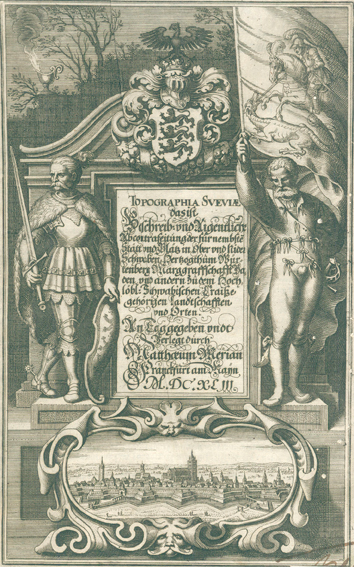 TOPOGRAPHIA SVEVIÆ
das ist
Beschreib: und Aigentliche
Abcontrafeitung der fürnembste
Stätt und Plätz in Ober und Nider
Schwaben, Hertzogthum Wür-
tenberg Marggraffschafft Ba-
den und andern zu dem Hoch-
löbl: Schwabischen Craiße
gehörigen Landtschafften
und Orten.
An Tag gegeben undt
Verlegt durch
Matthæum Merian
Franckfurt am Mayn.
M.DC.XLIII.